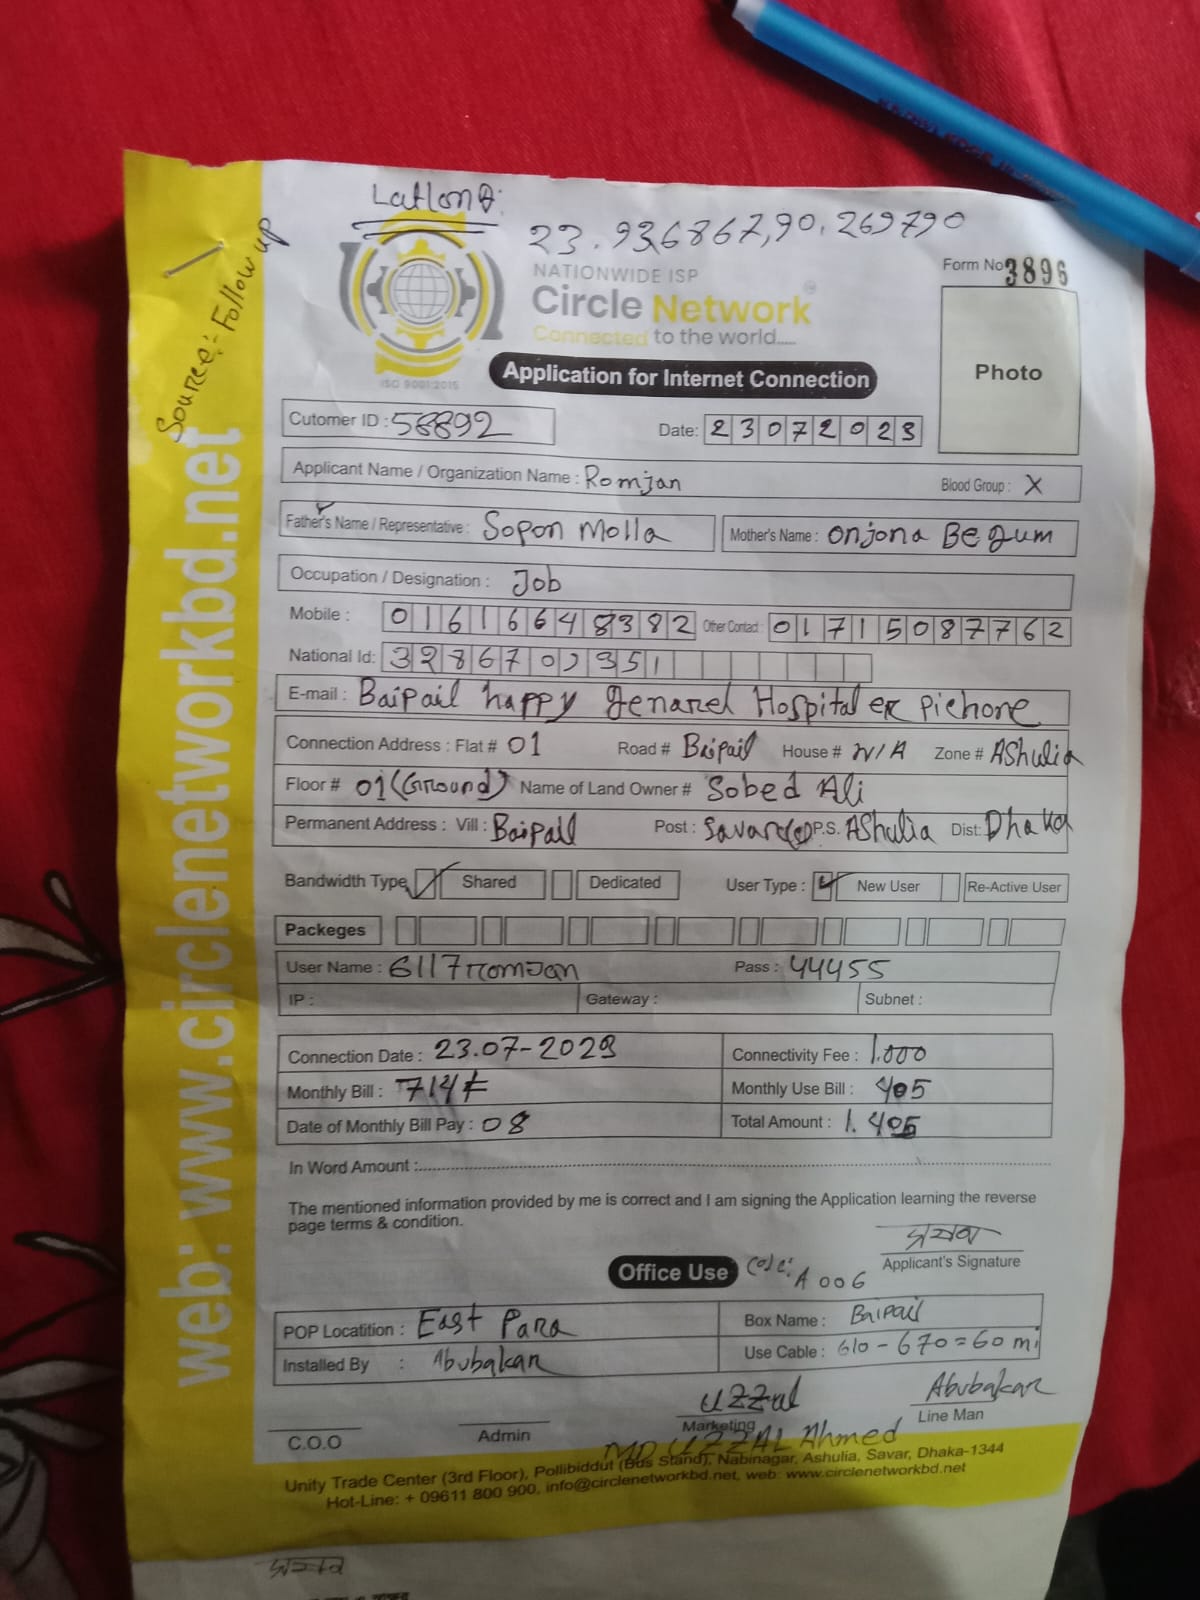 Latlong:
23.936867,90.269790
Source:- Follow up
NATIONWIDE ISP
Circle Network
Connected to the world.....
ISO 9001:2015
Form No 3896
Photo
Application for Internet Connection
Cutomer ID : 58892 Date: 23072023
Applicant Name / Organization Name : Romjan Blood Group : X
Father's Name / Representative : Sopon Molla Mother's Name : Onjona Begum
Occupation / Designation : Job
Mobile : 01616648382 Other Contact : 01715087762
National Id: 
E-mail : Baipail happy genarel Hospital er pichone
Connection Address : Flat # 01 Road # Baipail House # N/A Zone # AShulia
Floor # 01 (Ground) Name of Land Owner # Sobed Ali
Permanent Address : Vill : Baipail Post : Savar P.S. AShulia Dist: Dhaka
Bandwidth Type Shared Dedicated User Type : New User Re-Active User
Packeges
User Name : 6117romJan Pass : 44455
IP : Gateway : Subnet :
Connection Date : 23.07-2023 Connectivity Fee : 1.000
Monthly Bill : 714৳ Monthly Use Bill : 405
Date of Monthly Bill Pay : 08 Total Amount : 1.405
In Word Amount :
The mentioned information provided by me is correct and I am signing the Application learning the reverse
page terms & condition.
Applicant's Signature
Office Use A 006
POP Locatition : East Para Box Name : Baipail
Installed By : Abubakar Use Cable : 610 - 670 = 60 mi
UZZal Abubakar
C.O.O Admin Marketing Line Man
MD UZZAL Ahmed
Unity Trade Center (3rd Floor), Pollibiddut (Bus Stand), Nabinagar, Ashulia, Savar, Dhaka-1344
Hot-Line: + 09611 800 900, info@circlenetworkbd.net, web: www.circlenetworkbd.net
web: www.circlenetworkbd.net